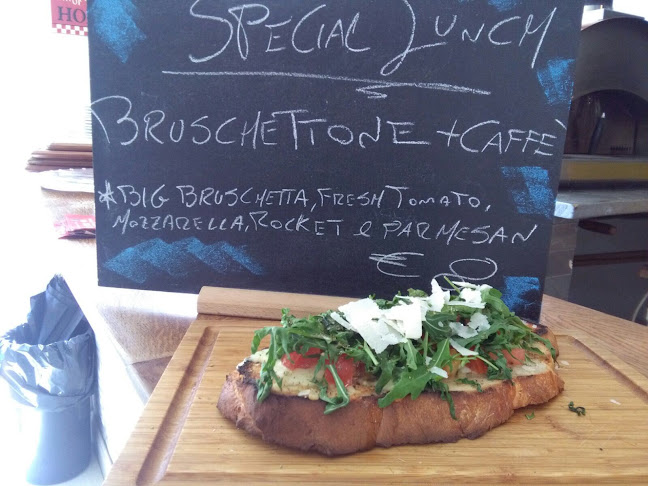 SPECIAL LUNCH
BRUSCHETTONE + CAFFÈ
*BIG BRUSCHETTA, FRESH TOMATO,
MOZZARELLA, ROCKET e PARMESAN
€